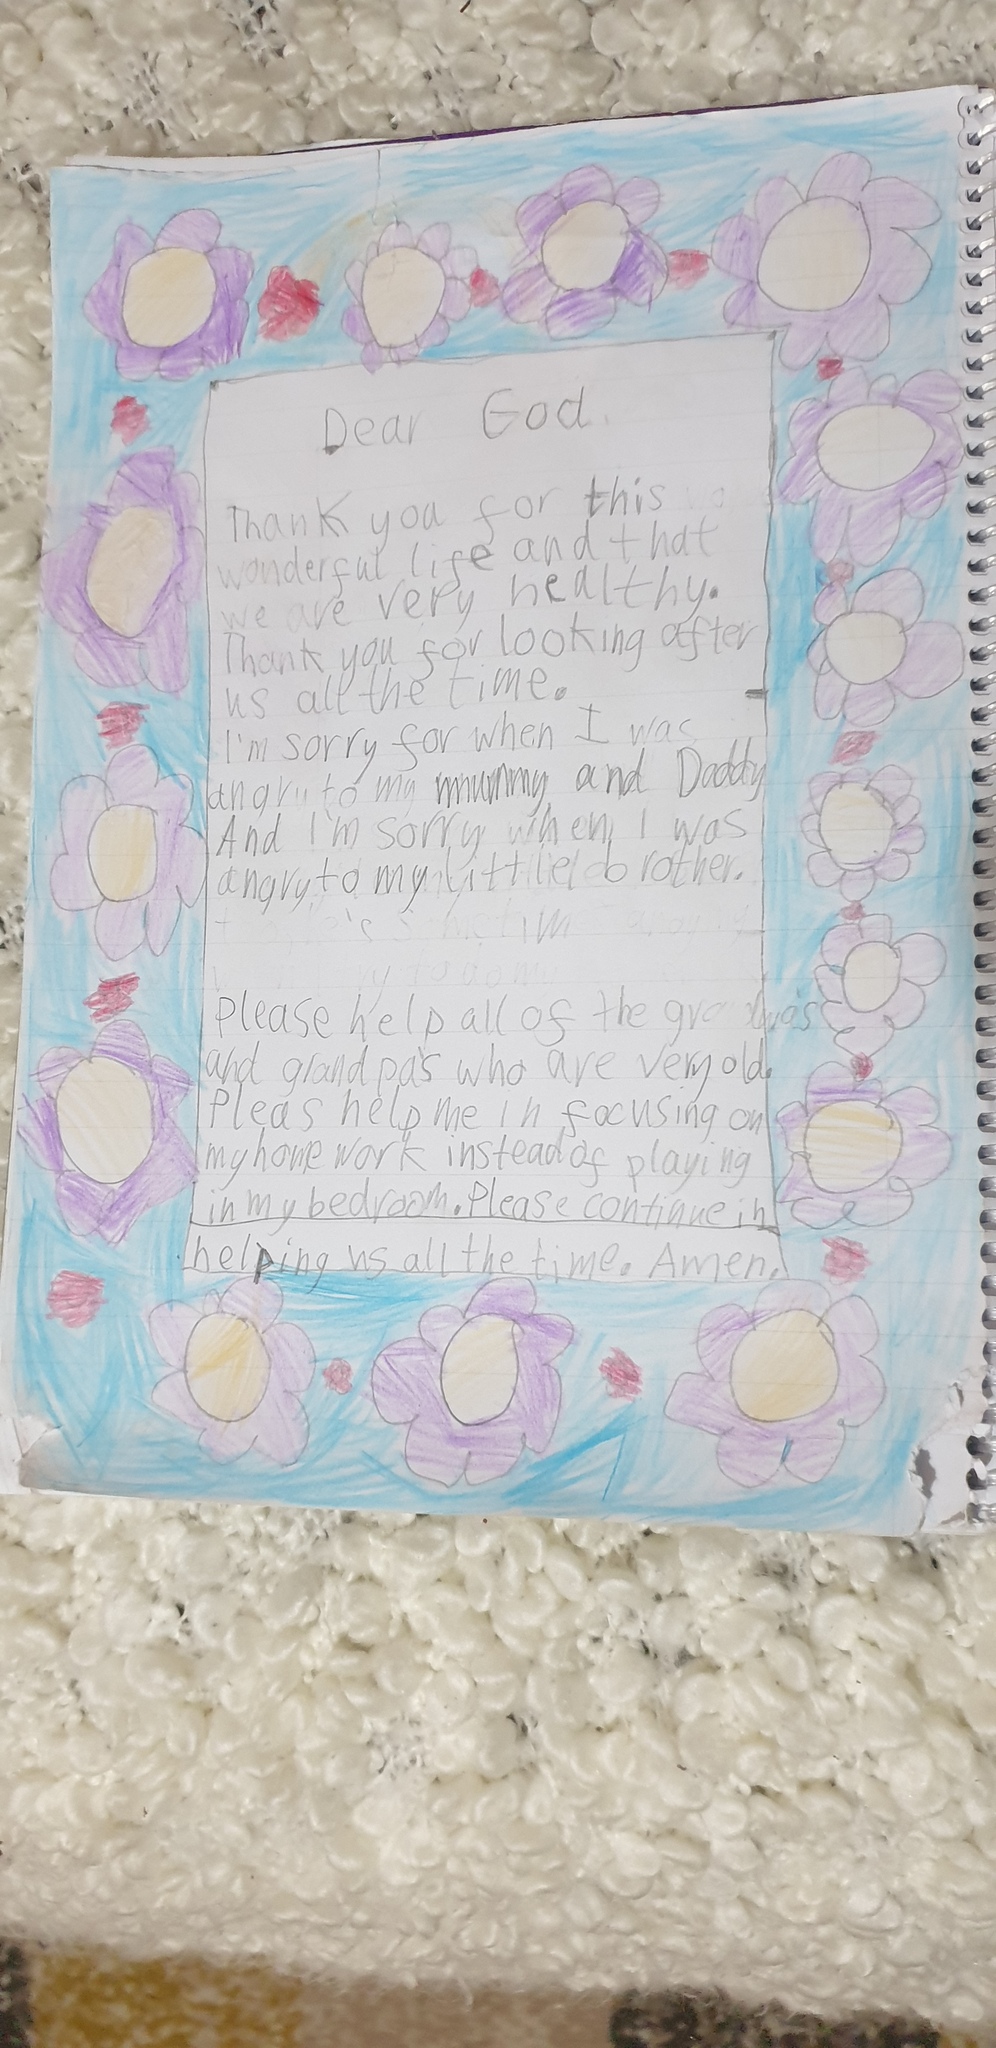 Dear God.
Thank you for this
wonderful life and that
we are very healthy.
Thank you for looking after
us all the time.
I'm sorry for when I was
angry to my mummy and Daddy
And I'm sorry when I was
angry to my little brother.
Please help all of the grandmas
and grandpas who are very old.
Pleas help me in focusing on
my home work instead of playing
in my bedroom. Please continue in
helping us all the time. Amen.